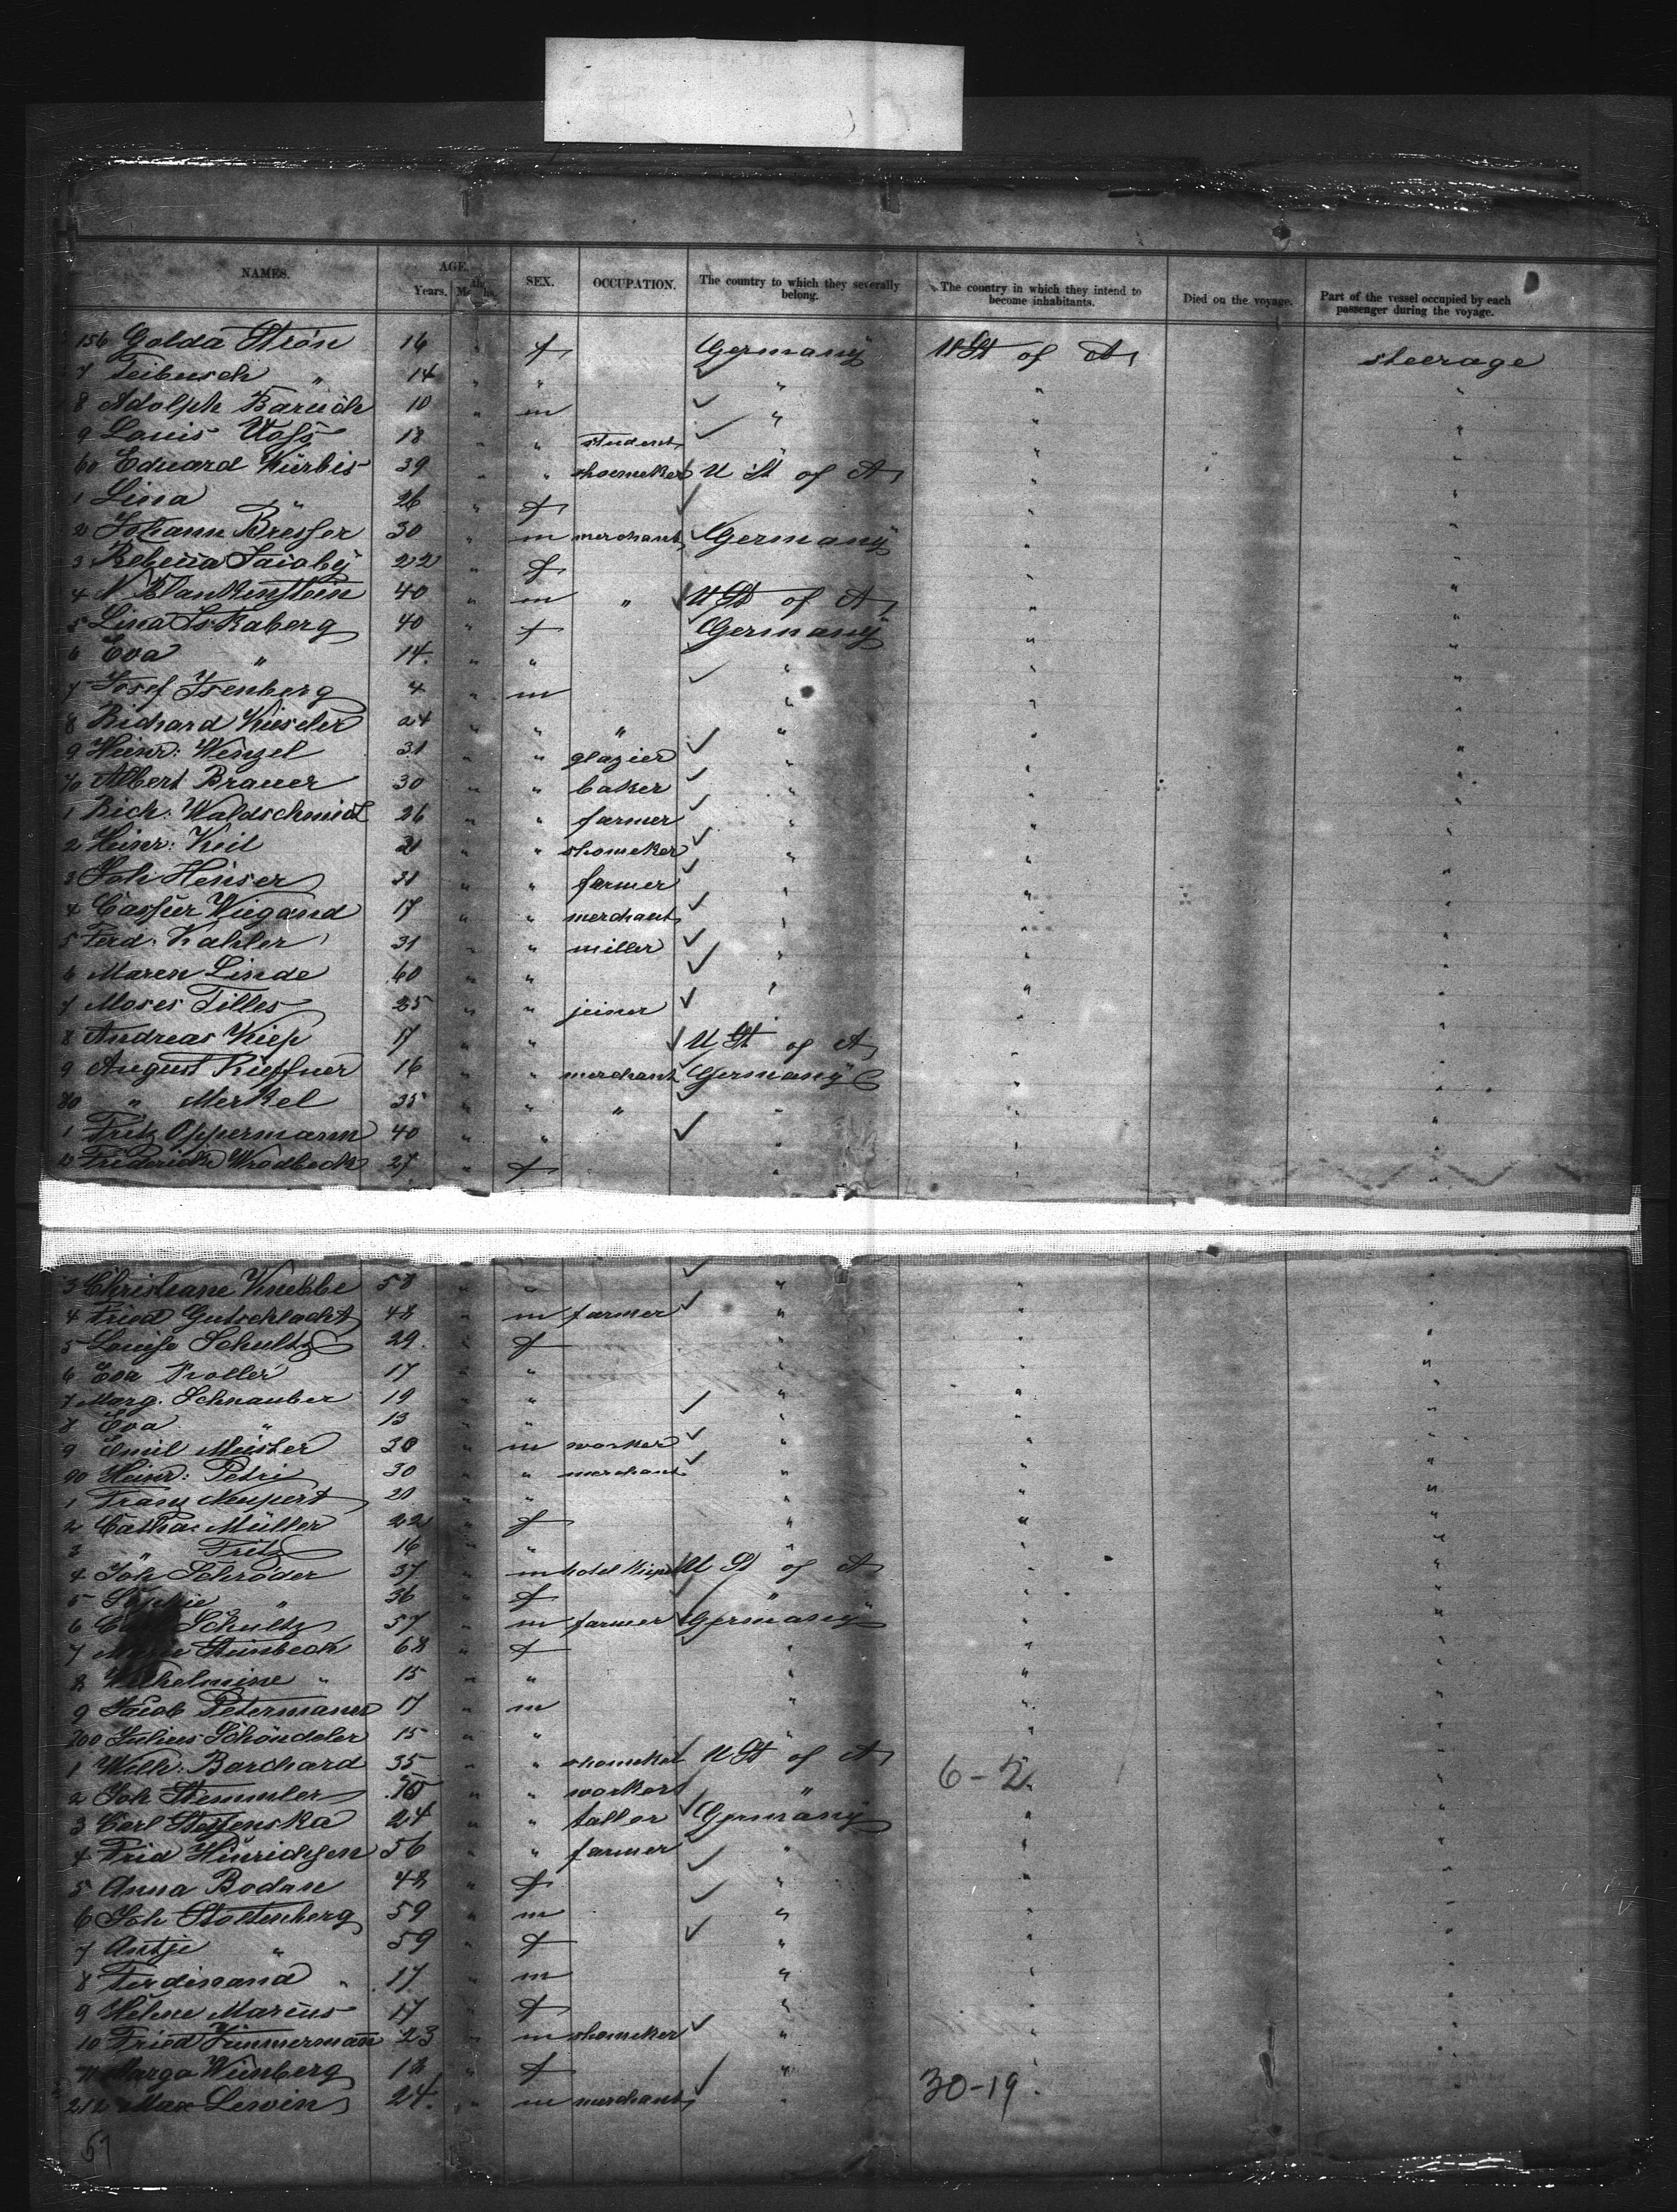 NAMES. AGE. Years. Mths. SEX. OCCUPATION. The country to which they severally belong. The country in which they intend to become inhabitants. Died on the voyage. Part of the vessel occupied by each passenger during the voyage.
156 Golda Strön 16 " f Germany U St of A steerage
7 Feibusch " 14 " " " " "
8 Adolph Baruch 10 " m " " "
9 Louis Voss 18 " " student " " "
60 Eduard Kürbis 39 " " shoemeker U St of A " "
1 Lina " 26 " f " "
2 Johann Bresser 30 " m merchant Germany " "
3 Rebecca 22 " f " "
4 N Blankenstein 40 " m " U St of A " "
5 Lina Iskaberg 40 " f Germany " "
6 Eva " 14 " " " " "
7 Josef Isenberg 4 " m " " "
8 Richard Kieseler 24 " " " " " "
9 Heinr: Wenzel 31 " " glazier " " "
70 Albert Brauer 30 " " baker " " "
1 Rich: Waldschmidt 26 " " farmer " " "
2 Heinr: Keil 21 " " shomeker " " "
3 Joh Henser 31 " " farmer " " "
4 Casper Wiegand 17 " " merchant " " "
5 Ferd. Kahler 31 " " miller " " "
6 Maren Linde 60 " " " " "
7 Moses Tilles 25 " " jeiner " " "
8 Andreas Kiep 17 " " U St of A " "
9 August Küffner 16 " " merchant Germany " "
80 " Merkel 35 " " " " " "
1 Fritz Oppermann 40 " " " " "
2 Friderich Wrodbeck 27 " f " " "
3 Christiane Knebbe 58 " " " " "
4 Fried Gutschlacht 48 " m farmer " " "
5 Louise Schultz 29 " f " " "
6 Eva 17 " " " " "
7 Marg. Schnauber 19 " " " " "
8 Eva " 13 " " " " "
9 Emil Meister 30 " m worker " " "
90 Heinr: Petri 30 " " merchant " " "
1 Franz Neupert 20 " " " " "
2 Catha: Müller 22 " f " " "
3 " Fritz 16 " " " " "
4 Joh Schröder 37 " m hotel U St of A " "
5 Sophie " 36 " f " " "
6 Schultz 57 " m farmer Germany " "
7 Steinbeck 68 " f " " "
8 Wilhelmine " 15 " " " " "
9 Jacob Petermann 17 " m " " "
200 Julius Schöndeler 15 " " " " "
1 Wilh: Barchard 35 " " U St of A " "
2 Joh Stemmler " " worker " 6-2 "
3 Carl 24 " " taller Germany " "
4 Frid Hinrichsen 56 " " farmer " " "
5 Anna Bodan 48 " f " " "
6 Joh Stoltenberg 59 " m " " "
7 Antje " 59 " f " " "
8 Ferdinand " 17 " m " " "
9 Helene Marcus 17 " f " " "
10 Fried Zimmermann 23 " m shomeker " " "
11 Marga Weinberg 18 " f " " "
212 Max Lewin 24 " m merchant " 30-19 "
57